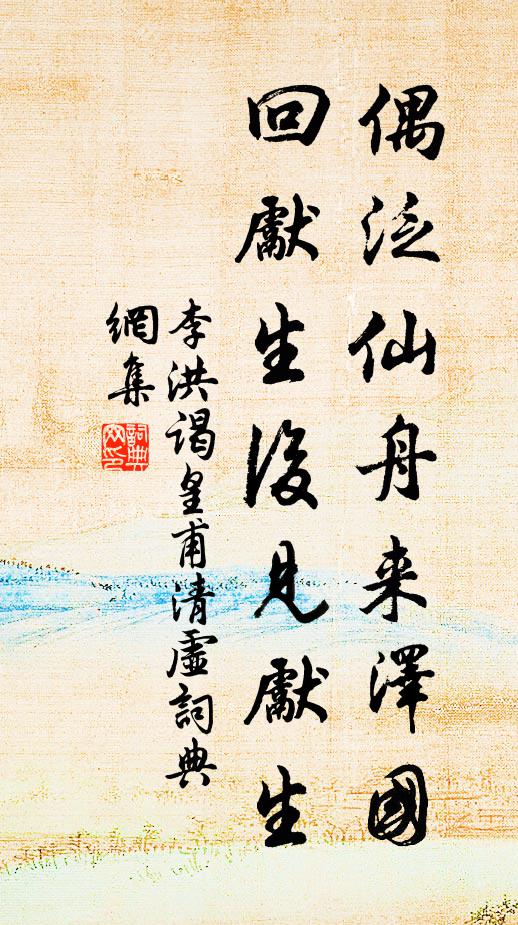 偶泛仙舟来澤國
回獻生後見獻生
李洪謁皇甫清虛詞典
網集
詞典
网印